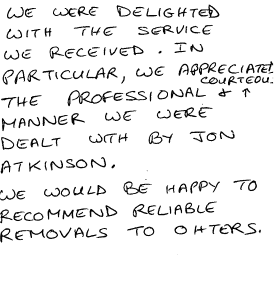 WE WERE DELIGHTED
WITH THE SERVICE
WE RECEIVED. IN
PARTICULAR, WE APPRECIATED
COURTEOUS
THE PROFESSIONAL & ↑
MANNER WE WERE
DEALT WITH BY JON
ATKINSON.
WE WOULD BE HAPPY TO
RECOMMEND RELIABLE
REMOVALS TO OHTERS.